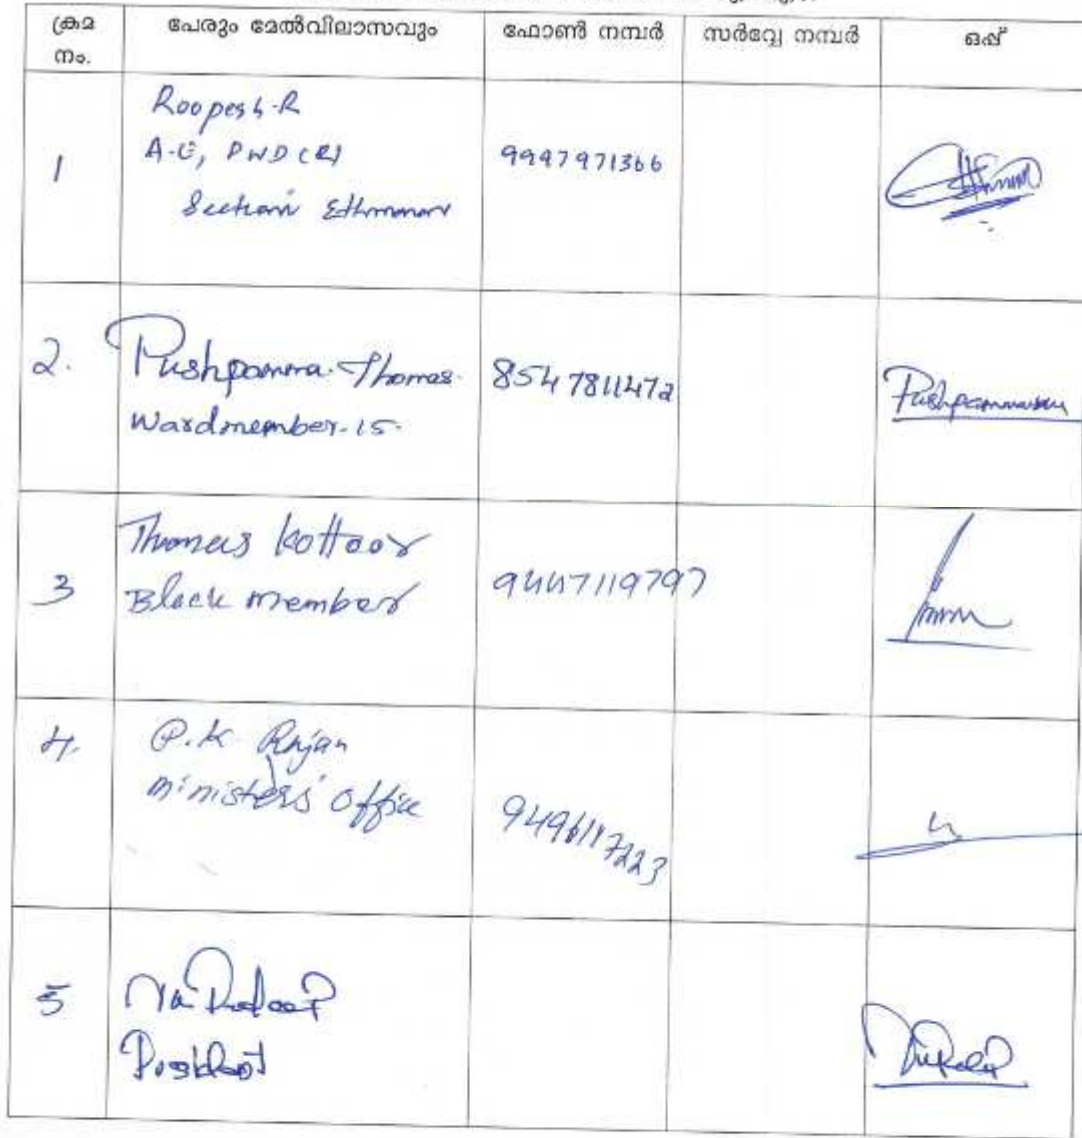 ക്രമ നം.
പേരും മേൽവിലാസവും
ഫോൺ നമ്പർ
സർവ്വേ നമ്പർ
ഒപ്പ്
1
Roopesh.R
A.E, PWD (R)
Section
9947971366
2.
Pushpamma Thomas.
Wardmember-15.
8547811472
3
Thomas Kottoor
Block member
9447119797
4.
P.K. Rajan
Minister's Office
9496117223
5
President